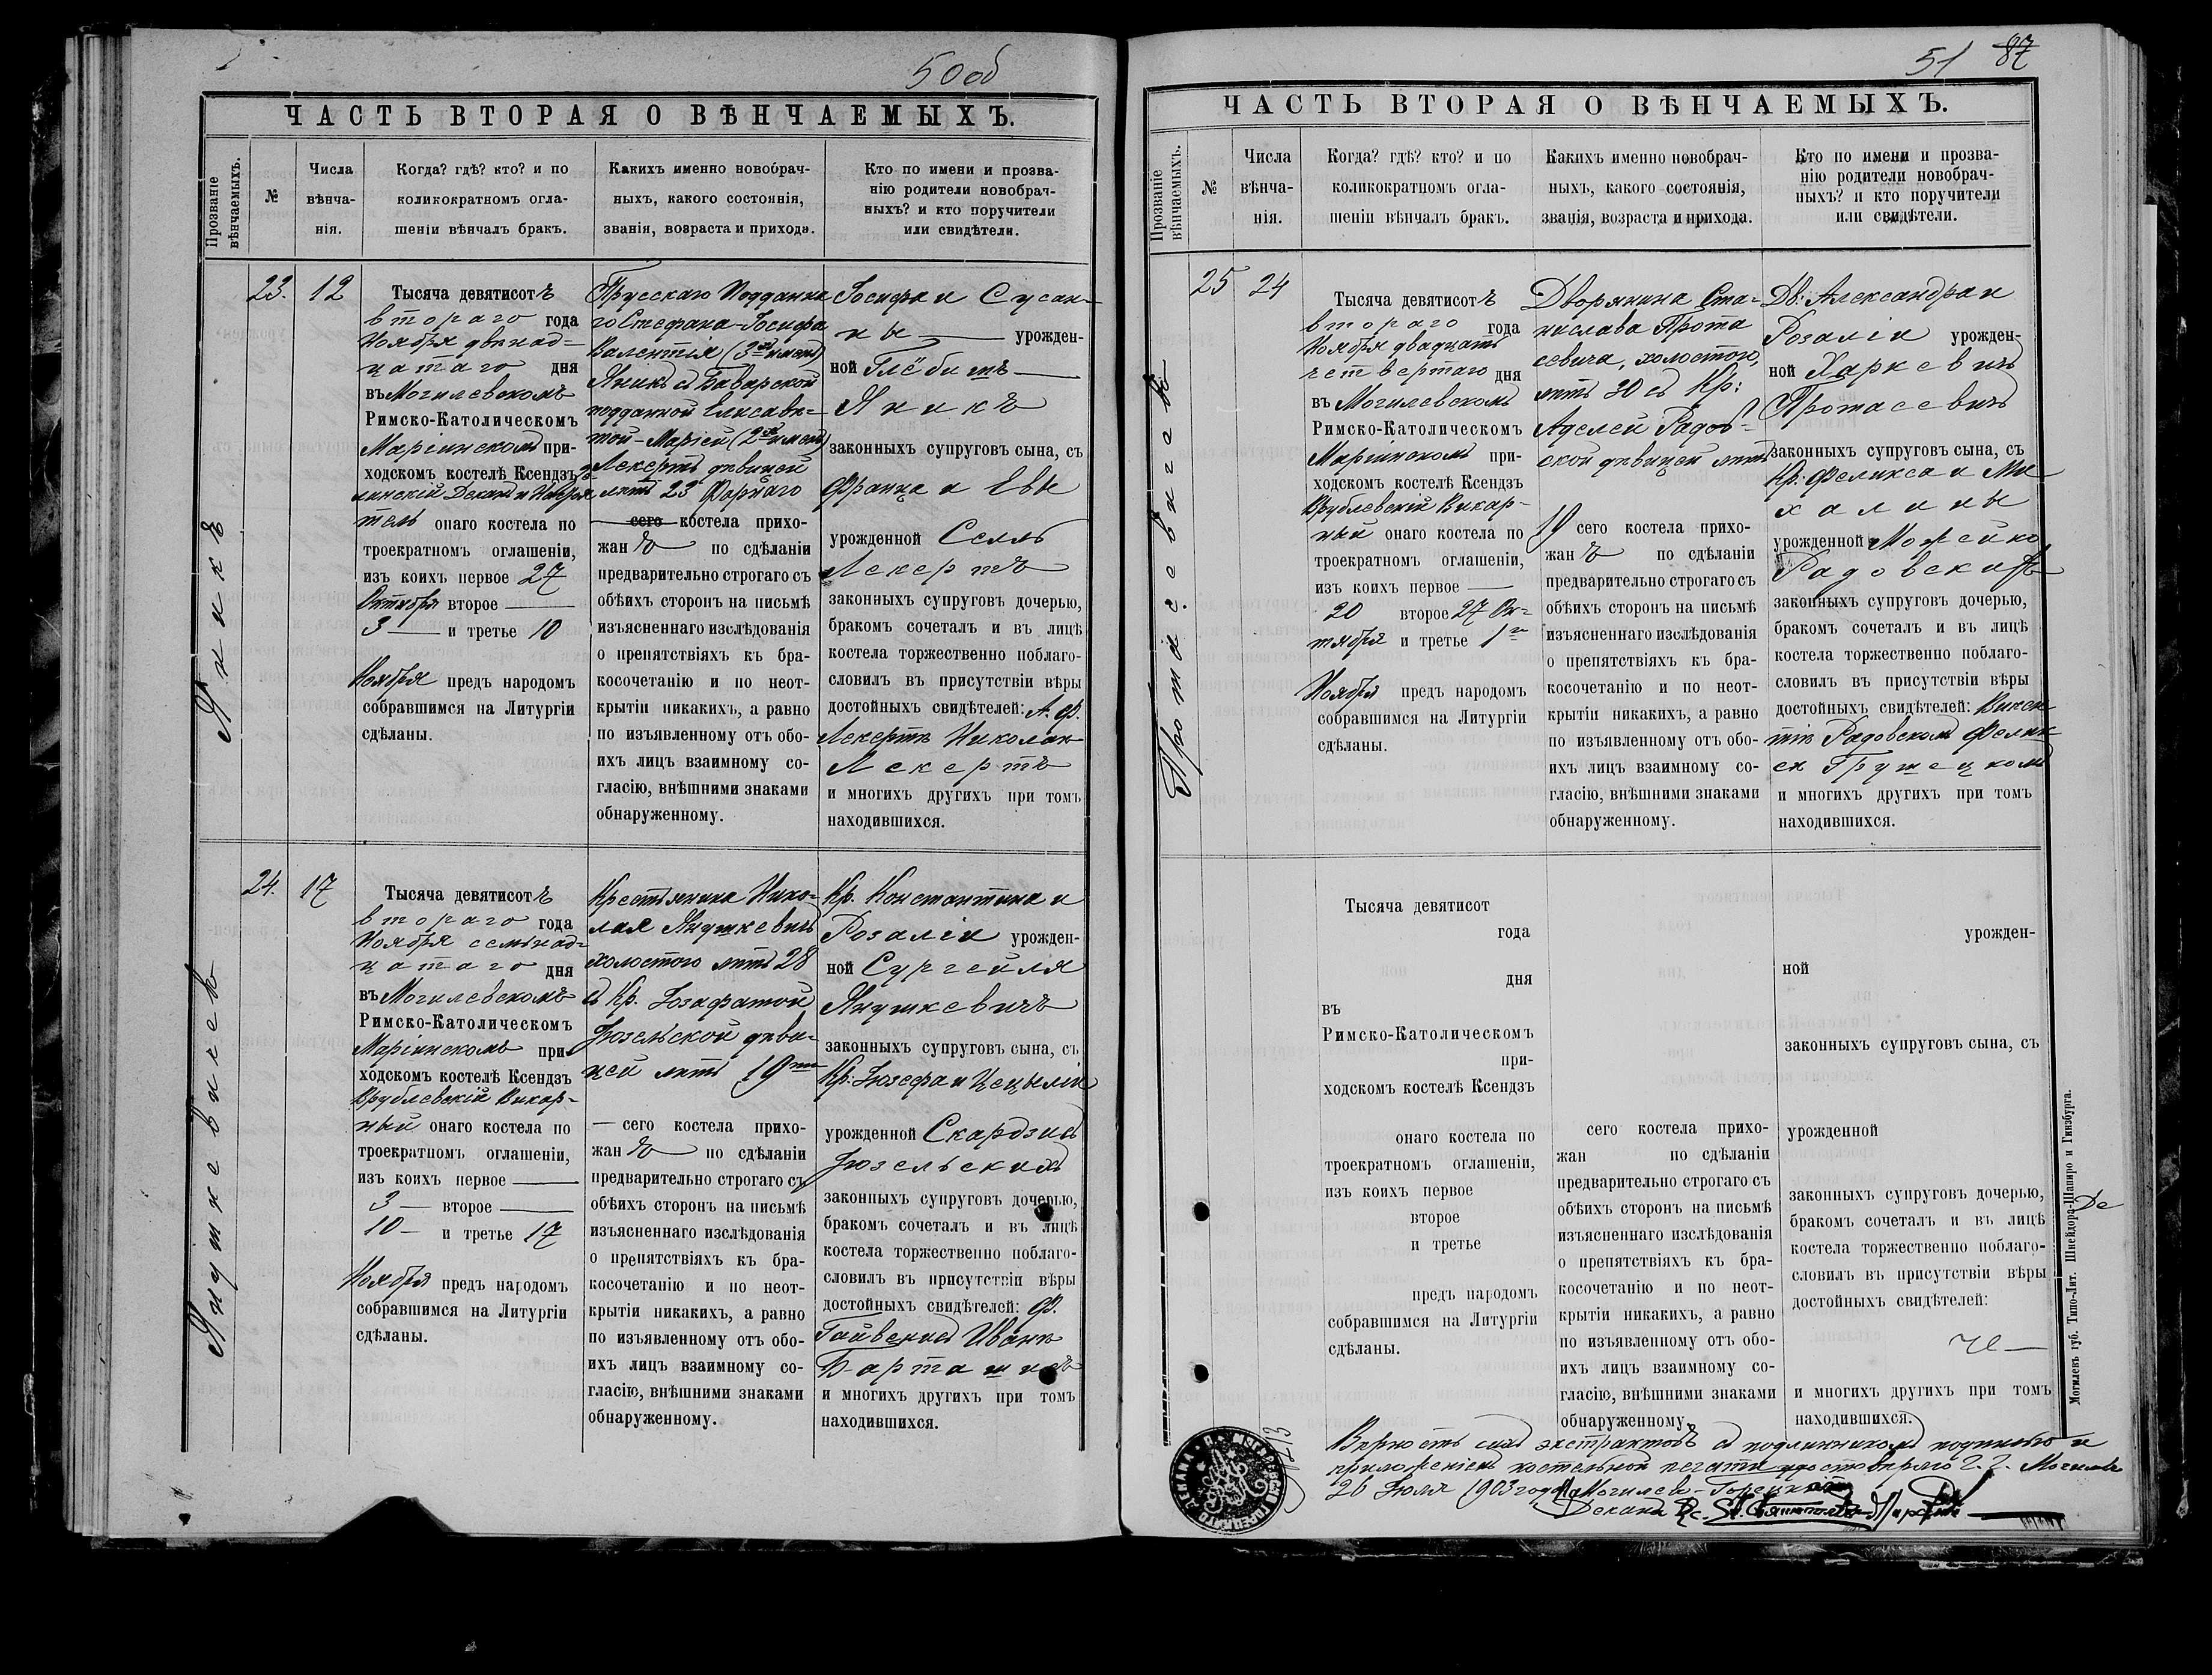 50 об
ЧАСТЬ ВТОРАЯ О ВѢНЧАЕМЫХЪ.
Прозваніе вѣнчаемыхъ.
№
Числа
вѣнча-
нія.
Когда? гдѣ? кто? и по
коликократномъ огла-
шеніи вѣнчалъ бракъ.
Какихъ именно новобрач-
ныхъ, какого состоянія,
званія, возраста и прихода.
Кто по имени и прозва-
нію родители новобрач-
ныхъ? и кто поручители
или свидѣтели.
Яникъ
23.
12
Тысяча девятисотъ
второго года
Ноября двѣнад=
цатаго дня
въ Могилевскомъ
Римско-Католическомъ
Маріинскомъ при-
ходскомъ костелѣ Ксендзъ
Деканъ и Настоя
тель онаго костела по
троекратномъ оглашеніи,
изъ коихъ первое 27
Октября второе —
3 — и третье 10
Ноября предъ народомъ
собравшимся на Литургіи
сдѣланы.
Прусскаго подданна
го Стефана-Іосифа
Валентія (3хъ именъ)
Яникъ съ Баварской
подданной Елисаве=
той-Маріей (2хъ именъ)
Лекертъ дѣвицей
лѣтъ 23 Фарнаго
сего костела прихо-
жанъ по сдѣланіи
предварительно строгаго съ
обѣихъ сторонъ на письмѣ
изъясненнаго изслѣдованія
о препятствіяхъ къ бра-
косочетанію и по неот-
крытіи никакихъ, а равно
по изъявленному отъ обо-
ихъ лицъ взаимному со-
гласію, внѣшними знаками
обнаруженному.
Іосифа и Сусан-
ны — урожден-
ной Глёбитъ —
Яникъ
законныхъ супруговъ сына, съ
Франца и Евы
урожденной Селль
Лекертъ
законныхъ супруговъ дочерью,
бракомъ сочеталъ и въ лицѣ
костела торжественно поблаго-
словилъ въ присутствіи вѣры
достойныхъ свидѣтелей: А. Ф.
Лекертъ Николая
Лекертъ
и многихъ другихъ при томъ
находившихся.
Янушкевичъ
24.
17
Тысяча девятисотъ
второго года
Ноября семьнад=
цатаго дня
въ Могилевскомъ
Римско-Католическомъ
Маріинскомъ при-
ходскомъ костелѣ Ксендзъ
Врублевскій Викар-
ный онаго костела по
троекратномъ оглашеніи,
изъ коихъ первое —
3 — второе —
10 — и третье 17
Ноября предъ народомъ
собравшимся на Литургіи
сдѣланы.
Крестьянина Нико=
лая Янушкевичъ
холостого лѣтъ 28
съ Кр. Іозафатой
Іюзельской дѣви-
цей лѣтъ 19ти
— сего костела прихо-
жанъ по сдѣланіи
предварительно строгаго съ
обѣихъ сторонъ на письмѣ
изъясненнаго изслѣдованія
о препятствіяхъ къ бра-
косочетанію и по неот-
крытіи никакихъ, а равно
по изъявленному отъ обо-
ихъ лицъ взаимному со-
гласію, внѣшними знаками
обнаруженному.
Кр. Константина и
Розаліи урожден-
ной Сургейля
Янушкевичъ
законныхъ супруговъ сына, съ
Кр: Іюзефа и Цецыліи
урожденной Скардзисъ
Іюзельскихъ
законныхъ супруговъ дочерью,
бракомъ сочеталъ и въ лицѣ
костела торжественно поблаго-
словилъ въ присутствіи вѣры
достойныхъ свидѣтелей: Ф.
Гайвенисъ Иванъ
и многихъ другихъ при томъ
находившихся.
51 87
ЧАСТЬ ВТОРАЯ О ВѢНЧАЕМЫХЪ.
Прозваніе вѣнчаемыхъ.
№
Числа
вѣнча-
нія.
Когда? гдѣ? кто? и по
коликократномъ огла-
шеніи вѣнчалъ бракъ.
Какихъ именно новобрач-
ныхъ, какого состоянія,
званія, возраста и прихода.
Кто по имени и прозва-
нію родители новобрач-
ныхъ? и кто поручители
или свидѣтели.
Протасевичъ
25
24
Тысяча девятисотъ
второго года
Ноября двадцать
четвертаго дня
въ Могилевскомъ
Римско-Католическомъ
Маріинскомъ при-
ходскомъ костелѣ Ксендзъ
Врублевскій Викар-
ный онаго костела по
троекратномъ оглашеніи,
изъ коихъ первое —
20 второе 27 Ок=
тября и третье 1го
Ноября предъ народомъ
собравшимся на Литургіи
сдѣланы.
Дворянина Ста=
нислава Прота
севича, холостого,
лѣтъ 30 съ Кр:
Аделей Радов-
ской дѣвицей лѣтъ
19 сего костела прихо-
жанъ по сдѣланіи
предварительно строгаго съ
обѣихъ сторонъ на письмѣ
изъясненнаго изслѣдованія
о препятствіяхъ къ бра-
косочетанію и по неот-
крытіи никакихъ, а равно
по изъявленному отъ обо-
ихъ лицъ взаимному со-
гласію, внѣшними знаками
обнаруженному.
Дв: Александра и
Розаліи урожден-
ной Харкевичъ
Протасевичъ
законныхъ супруговъ сына, съ
Кр: Феликса и Ми
халины
урожденной Можейко
Радовскихъ
законныхъ супруговъ дочерью,
бракомъ сочеталъ и въ лицѣ
костела торжественно поблаго-
словилъ въ присутствіи вѣры
достойныхъ свидѣтелей: Викен
тіи Радовскомъ Феликсѣ
Грушецкомъ
и многихъ другихъ при томъ
находившихся.
Тысяча девятисот
года
дня
въ
Римско-Католическомъ
при-
ходскомъ костелѣ Ксендзъ
онаго костела по
троекратномъ оглашеніи,
изъ коихъ первое
второе
и третье
предъ народомъ
собравшимся на Литургіи
сдѣланы.
сего костела прихо-
жан по сдѣланіи
предварительно строгаго съ
обѣихъ сторонъ на письмѣ
изъясненнаго изслѣдованія
о препятствіяхъ къ бра-
косочетанію и по неот-
крытіи никакихъ, а равно
по изъявленному отъ обо-
ихъ лицъ взаимному со-
гласію, внѣшними знаками
обнаруженному.
урожден-
ной
законныхъ супруговъ сына, съ
урожденной
законныхъ супруговъ дочерью,
бракомъ сочеталъ и въ лицѣ
костела торжественно поблаго-
словилъ въ присутствіи вѣры
достойныхъ свидѣтелей:
и многихъ другихъ при томъ
находившихся.
Могилевъ губ. Типо-Лит. Шнейдора-Шапиро и Гинзбурга.
Де
№ 213
Вѣрность сихъ экстрактовъ съ подлинникомъ подписью и
приложеніемъ костельной печати удостовѣряю Г. Г. Могилевъ
26 Іюля 1903 года Могилев-Горецкій
Деканъ Кс. Св.